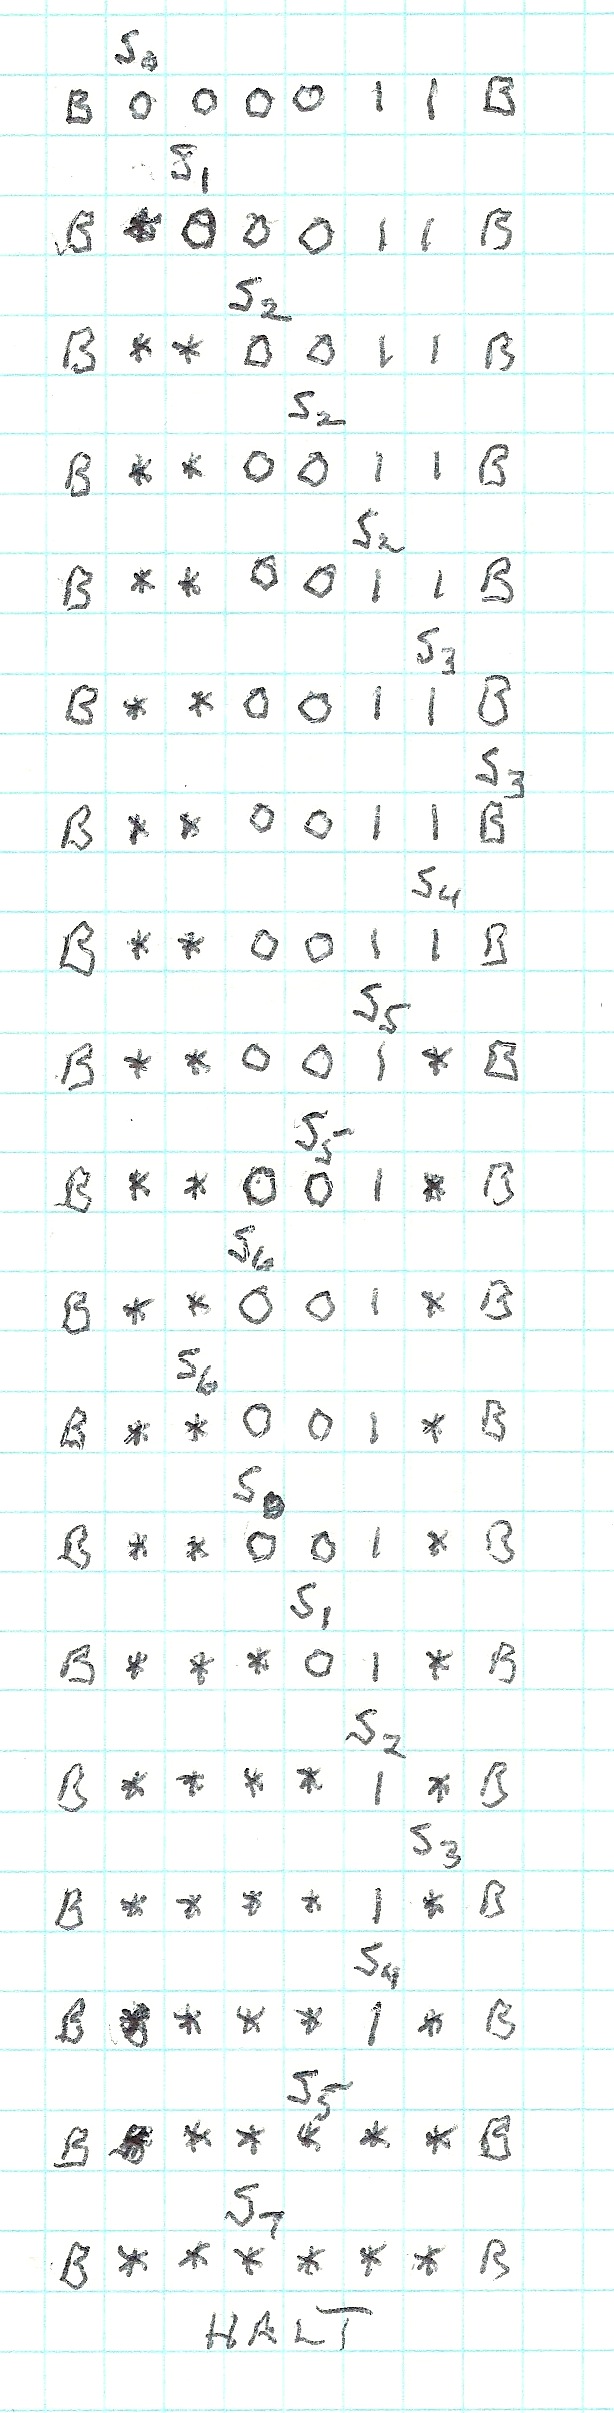 S0
B 0 0 0 0 1 1 B
S1
B * 0 0 0 1 1 B
S2
B * * 0 0 1 1 B
S2
B * * 0 0 1 1 B
S2
B * * 0 0 1 1 B
S3
B * * 0 0 1 1 B
S3
B * * 0 0 1 1 B
S4
B * * 0 0 1 1 B
S5
B * * 0 0 1 * B
S5
B * * 0 0 1 * B
S6
B * * 0 0 1 * B
S6
B * * 0 0 1 * B
S0
B * * 0 0 1 * B
S1
B * * * 0 1 * B
S2
B * * * * 1 * B
S3
B * * * * 1 * B
S4
B * * * * 1 * B
S5
B * * * * * * B
S7
B * * * * * * B
HALT